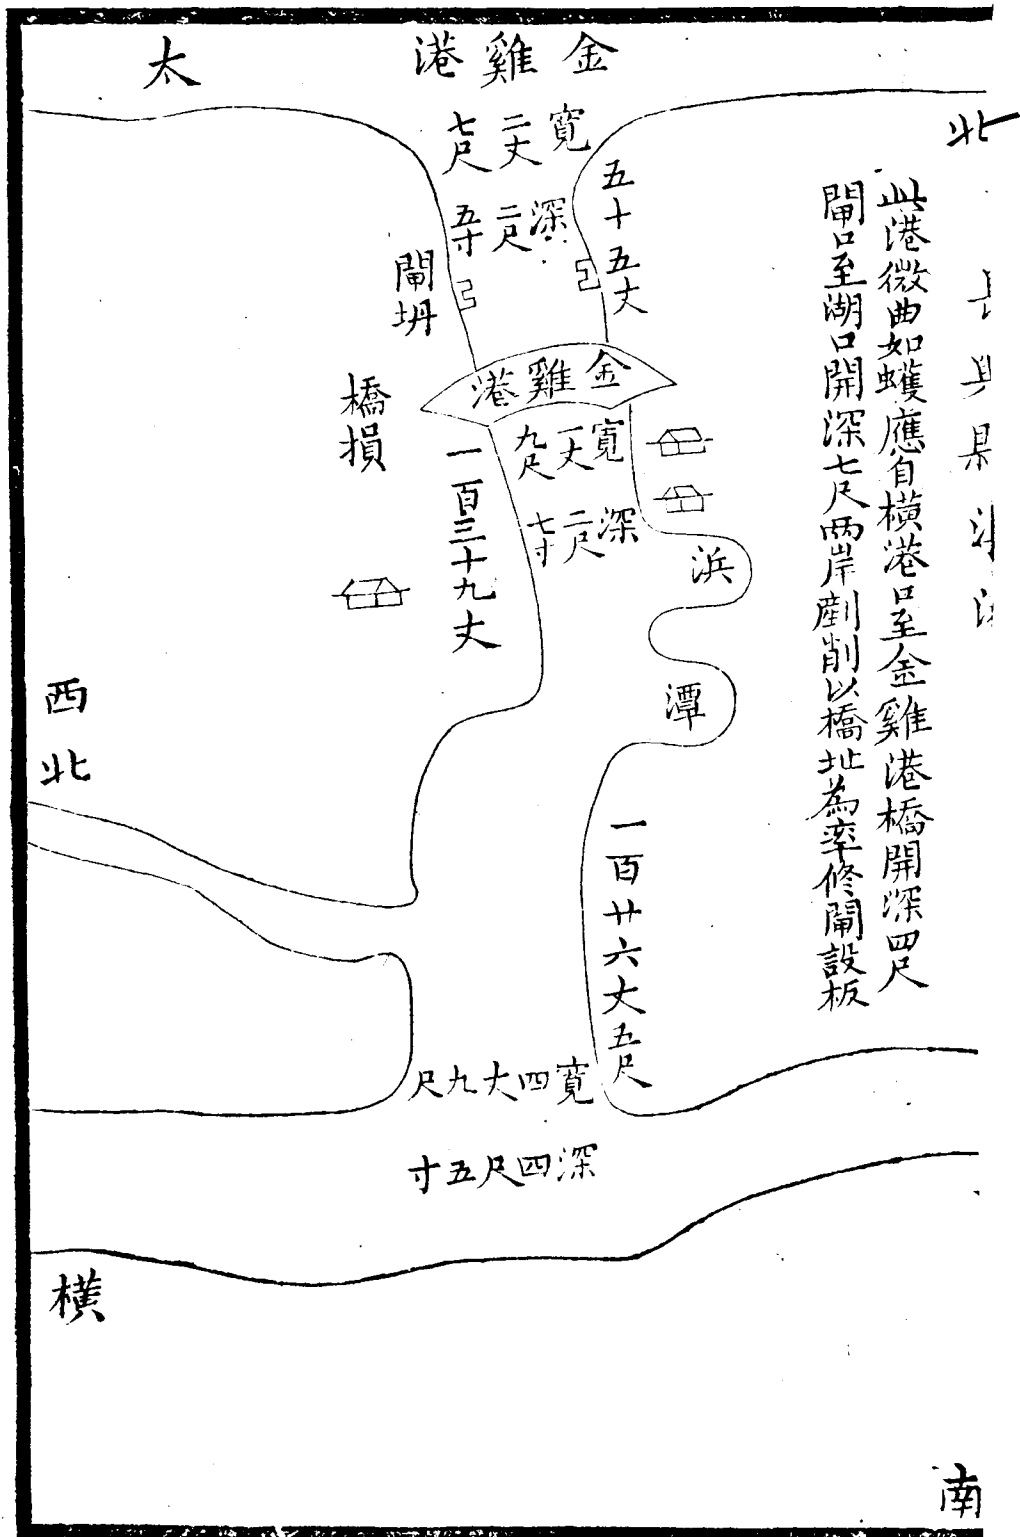 北
此港微曲如蠖應自橫港口至金雞港橋開深四尺
閘口至湖口開深七尺兩岸剷削以橋址為率修閘設板
金雞港
太
寬二丈七尺
深二尺五寸
五十五丈
閘坍
金雞港
橋損
寬一丈九尺
深二尺七寸
一百三十九丈
浜
潭
西北
一百廿六丈五尺
寬四丈九尺
深四尺五寸
橫
南